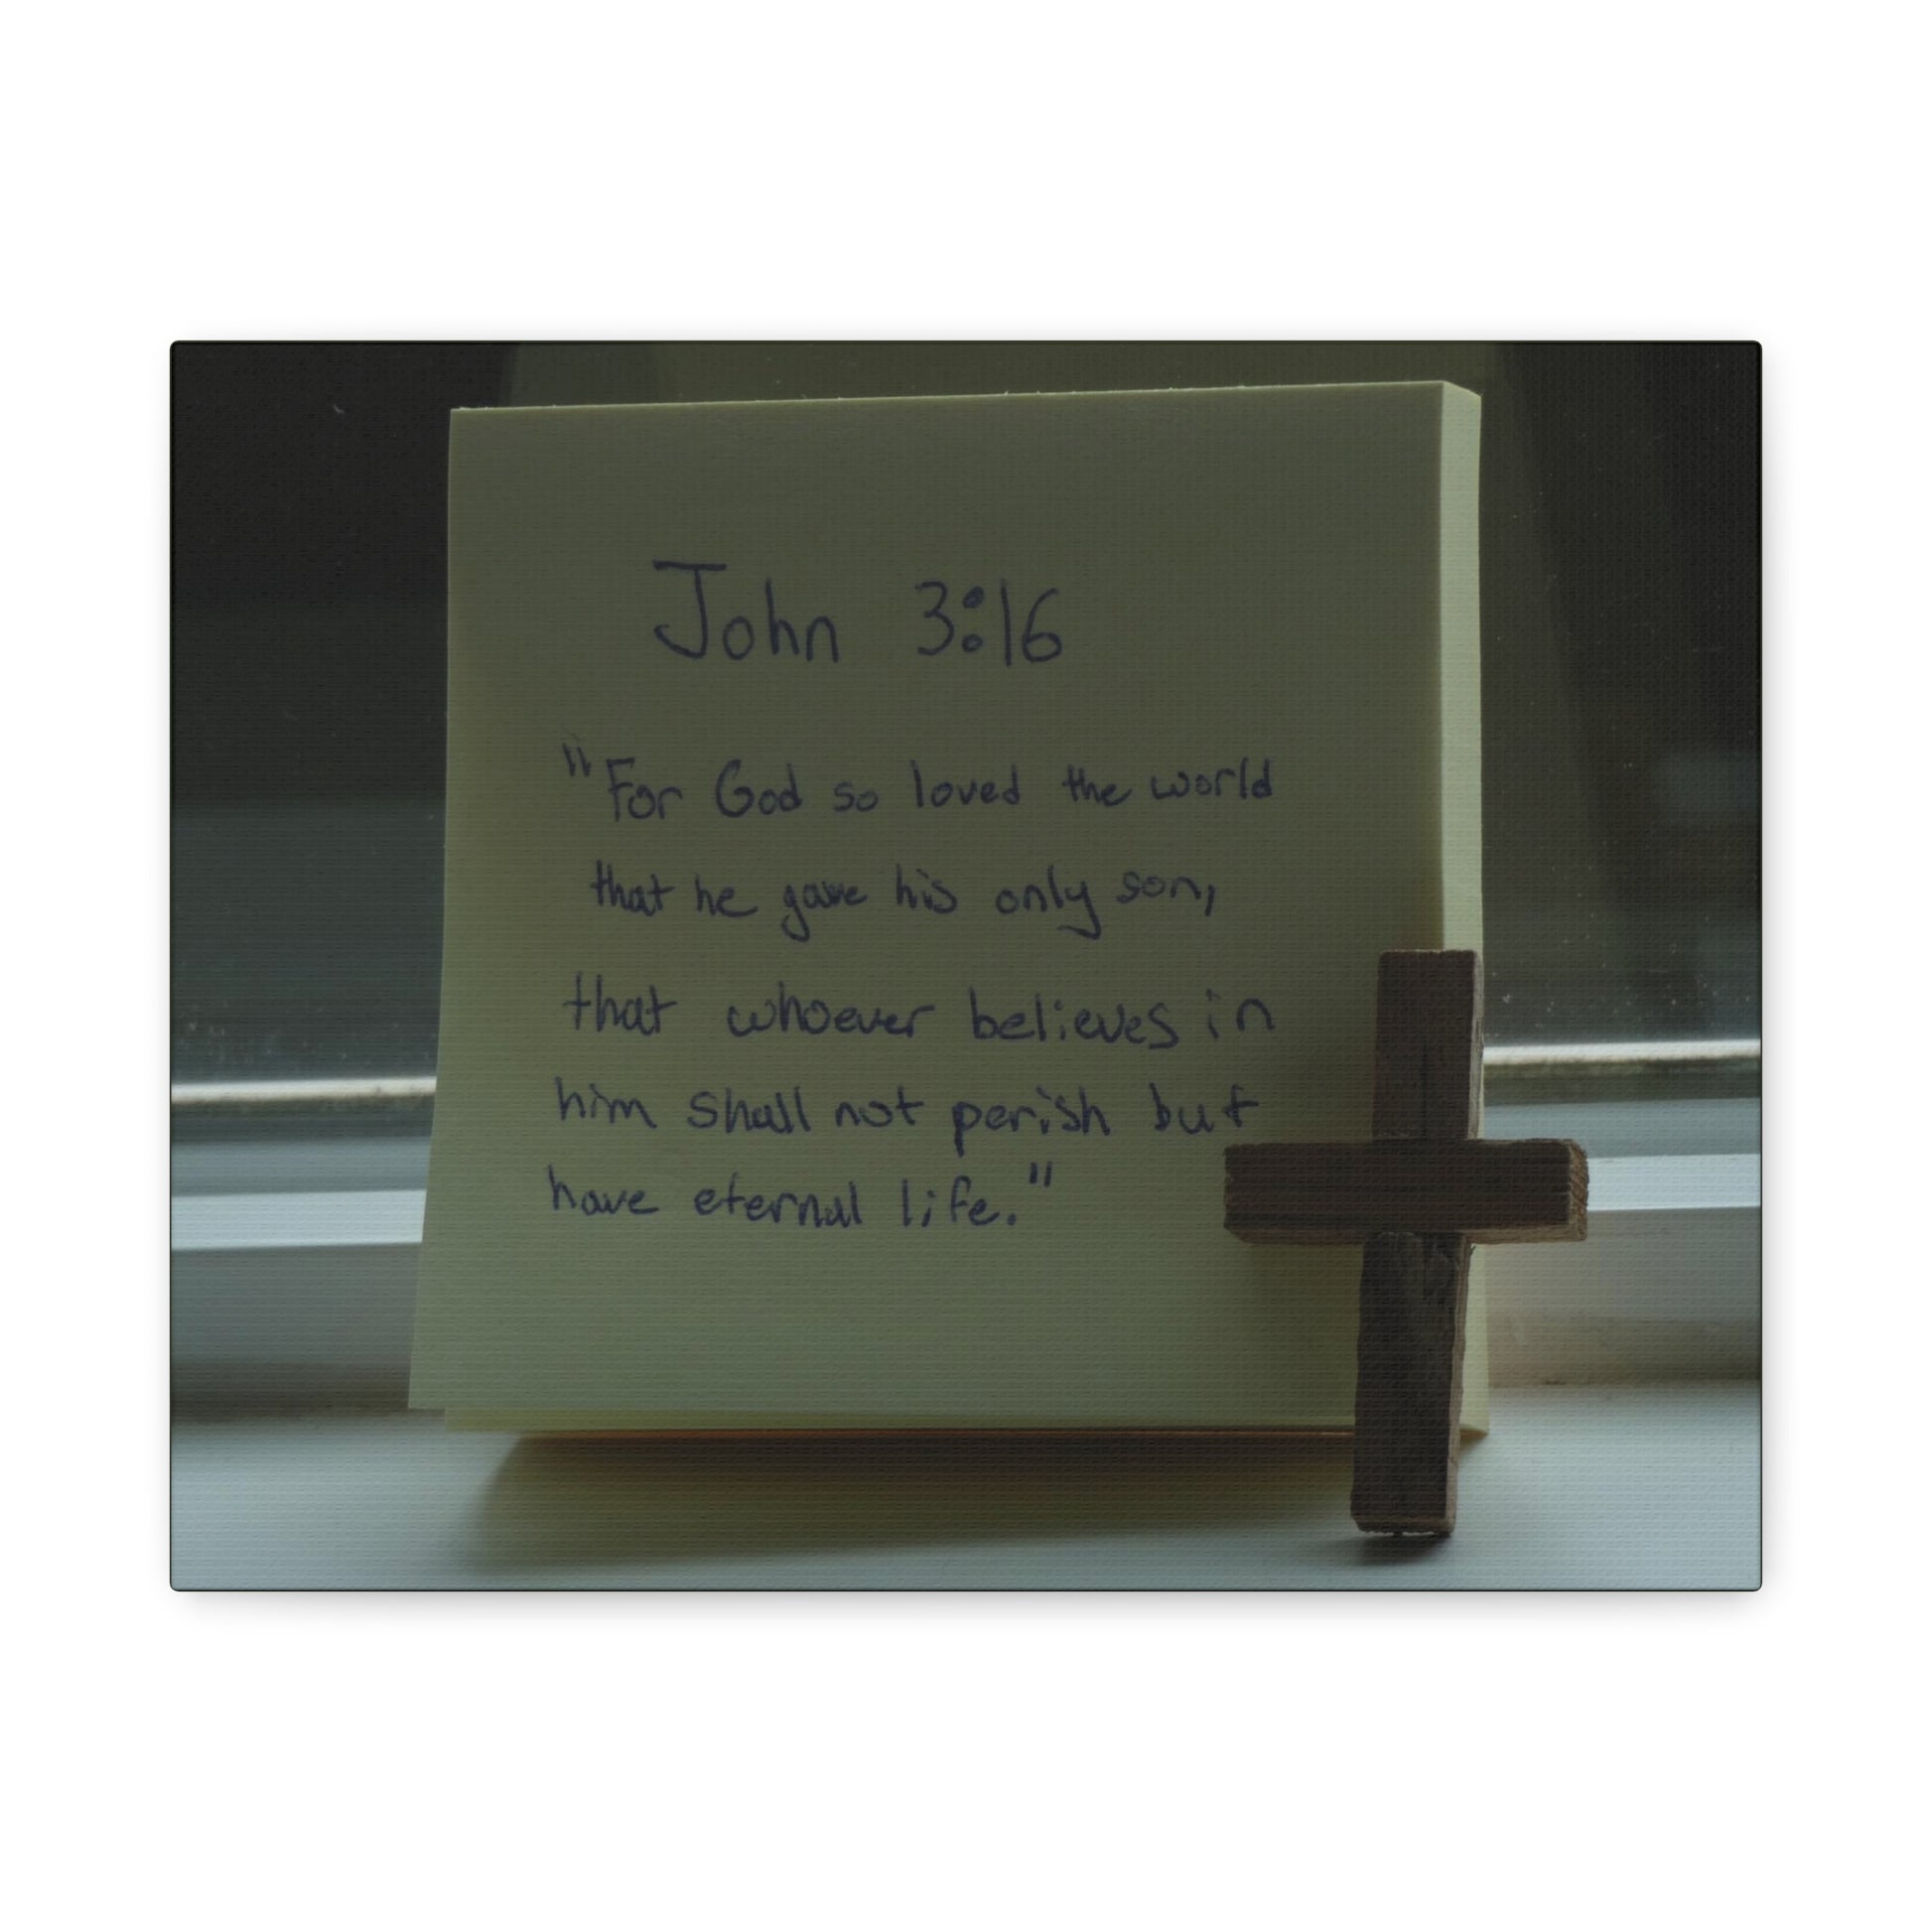 John 3:16
"For God so loved the world
that he gave his only son,
that whoever believes in
him shall not perish but
have eternal life."